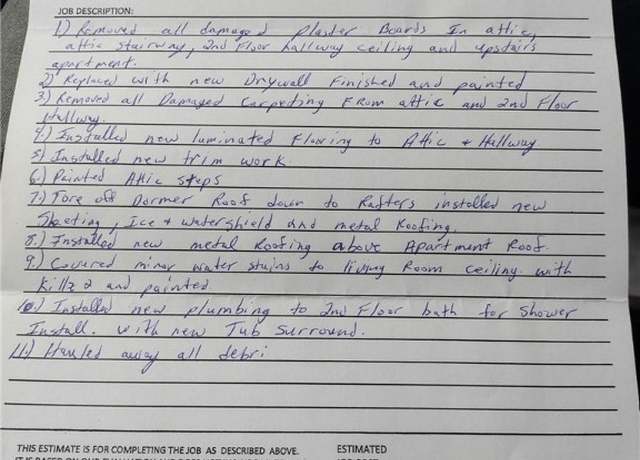 JOB DESCRIPTION:
1.) Removed all damaged plaster Boards In attic,
attic stairway, 2nd Floor hallway ceiling and upstairs
apartment.
2) Replaced with new Drywall Finished and painted
3.) Removed all Damaged Carpeting FRom attic and 2nd Floor
Hallway.
4.) Installed new luminated Flooring to Attic + Hallway
5) Installed new trim work
6.) Painted Attic steps
7.) Tore off Dormer Roof down to Rafters installed new
Sheeting, Ice + watershield and metal Roofing.
8.) Installed new metal Roofing above Apartment Roof.
9.) Covered minor water stains to living Room ceiling with
Killz 2 and painted
10.) Installed new plumbing to 2nd Floor bath for Shower
Install. with new Tub Surround.
11.) Hauled away all debri
THIS ESTIMATE IS FOR COMPLETING THE JOB AS DESCRIBED ABOVE. ESTIMATED